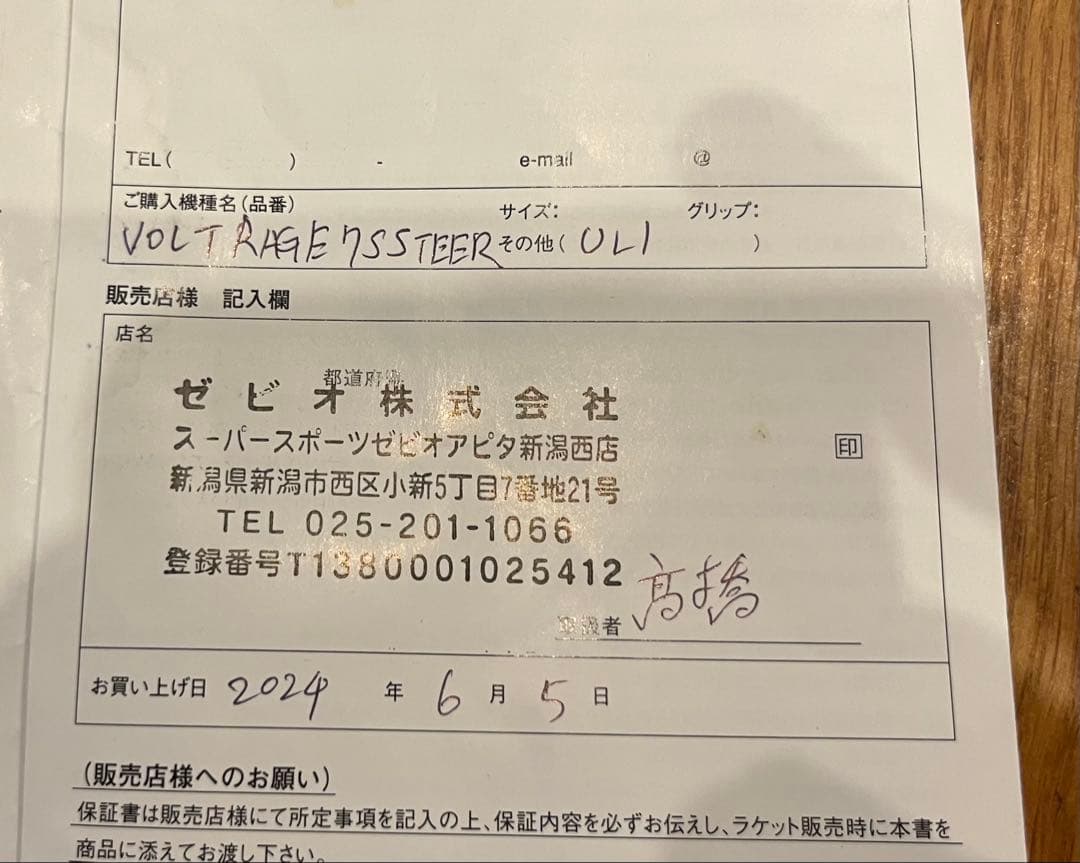 TEL( ) - e-mail @
ご購入機種名(品番) サイズ: グリップ:
VOLTRAGE7SSTEER その他( ULI )
販売店様 記入欄
店名
都道府県
ゼビオ株式会社
スーパースポーツゼビオアピタ新潟西店
印
新潟県新潟市西区小新5丁目7番地21号
TEL 025-201-1066
登録番号T1380001025412
取扱者 髙橋
お買い上げ日 2024 年 6 月 5 日
(販売店様へのお願い)
保証書は販売店様にて所定事項を記入の上、保証内容を必ずお伝えし、ラケット販売時に本書を
商品に添えてお渡し下さい。